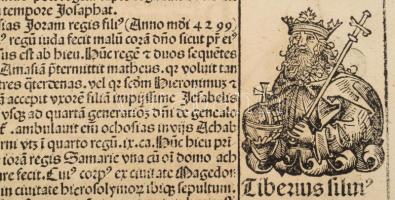 tempore Josaphat.
sias Joram regis fili⁹ (Anno mũdi 4299)
regũ iuda fecit malũ corã dño sicut pr̃ ei⁹
sus est ab hieu. Hũc regẽ ⁊ duos sequẽtes
Amasiã p̃termittit matheus. q̃ voluit tan
tres q̃terdenas. vel q̃ scd̃m Hieronimuz ⁊
ã accepit vxorẽ filiã impijssime Jesabelis
vsqz ad quartã generatiõẽ dñi de genealo
t̃. ambulauit em̃ ochosias in vijs Achab
rni vtz i quarto regũ. ix. ca. Hũc hieu pri
iorã regis Samarie vna cũ oĩ domo ach
re fecit. Cui⁹ corp⁹ ex ciuitate Magedon
in ciuitate hierosolymor̃ ibiqz sepultum.
Liberius siluі⁹